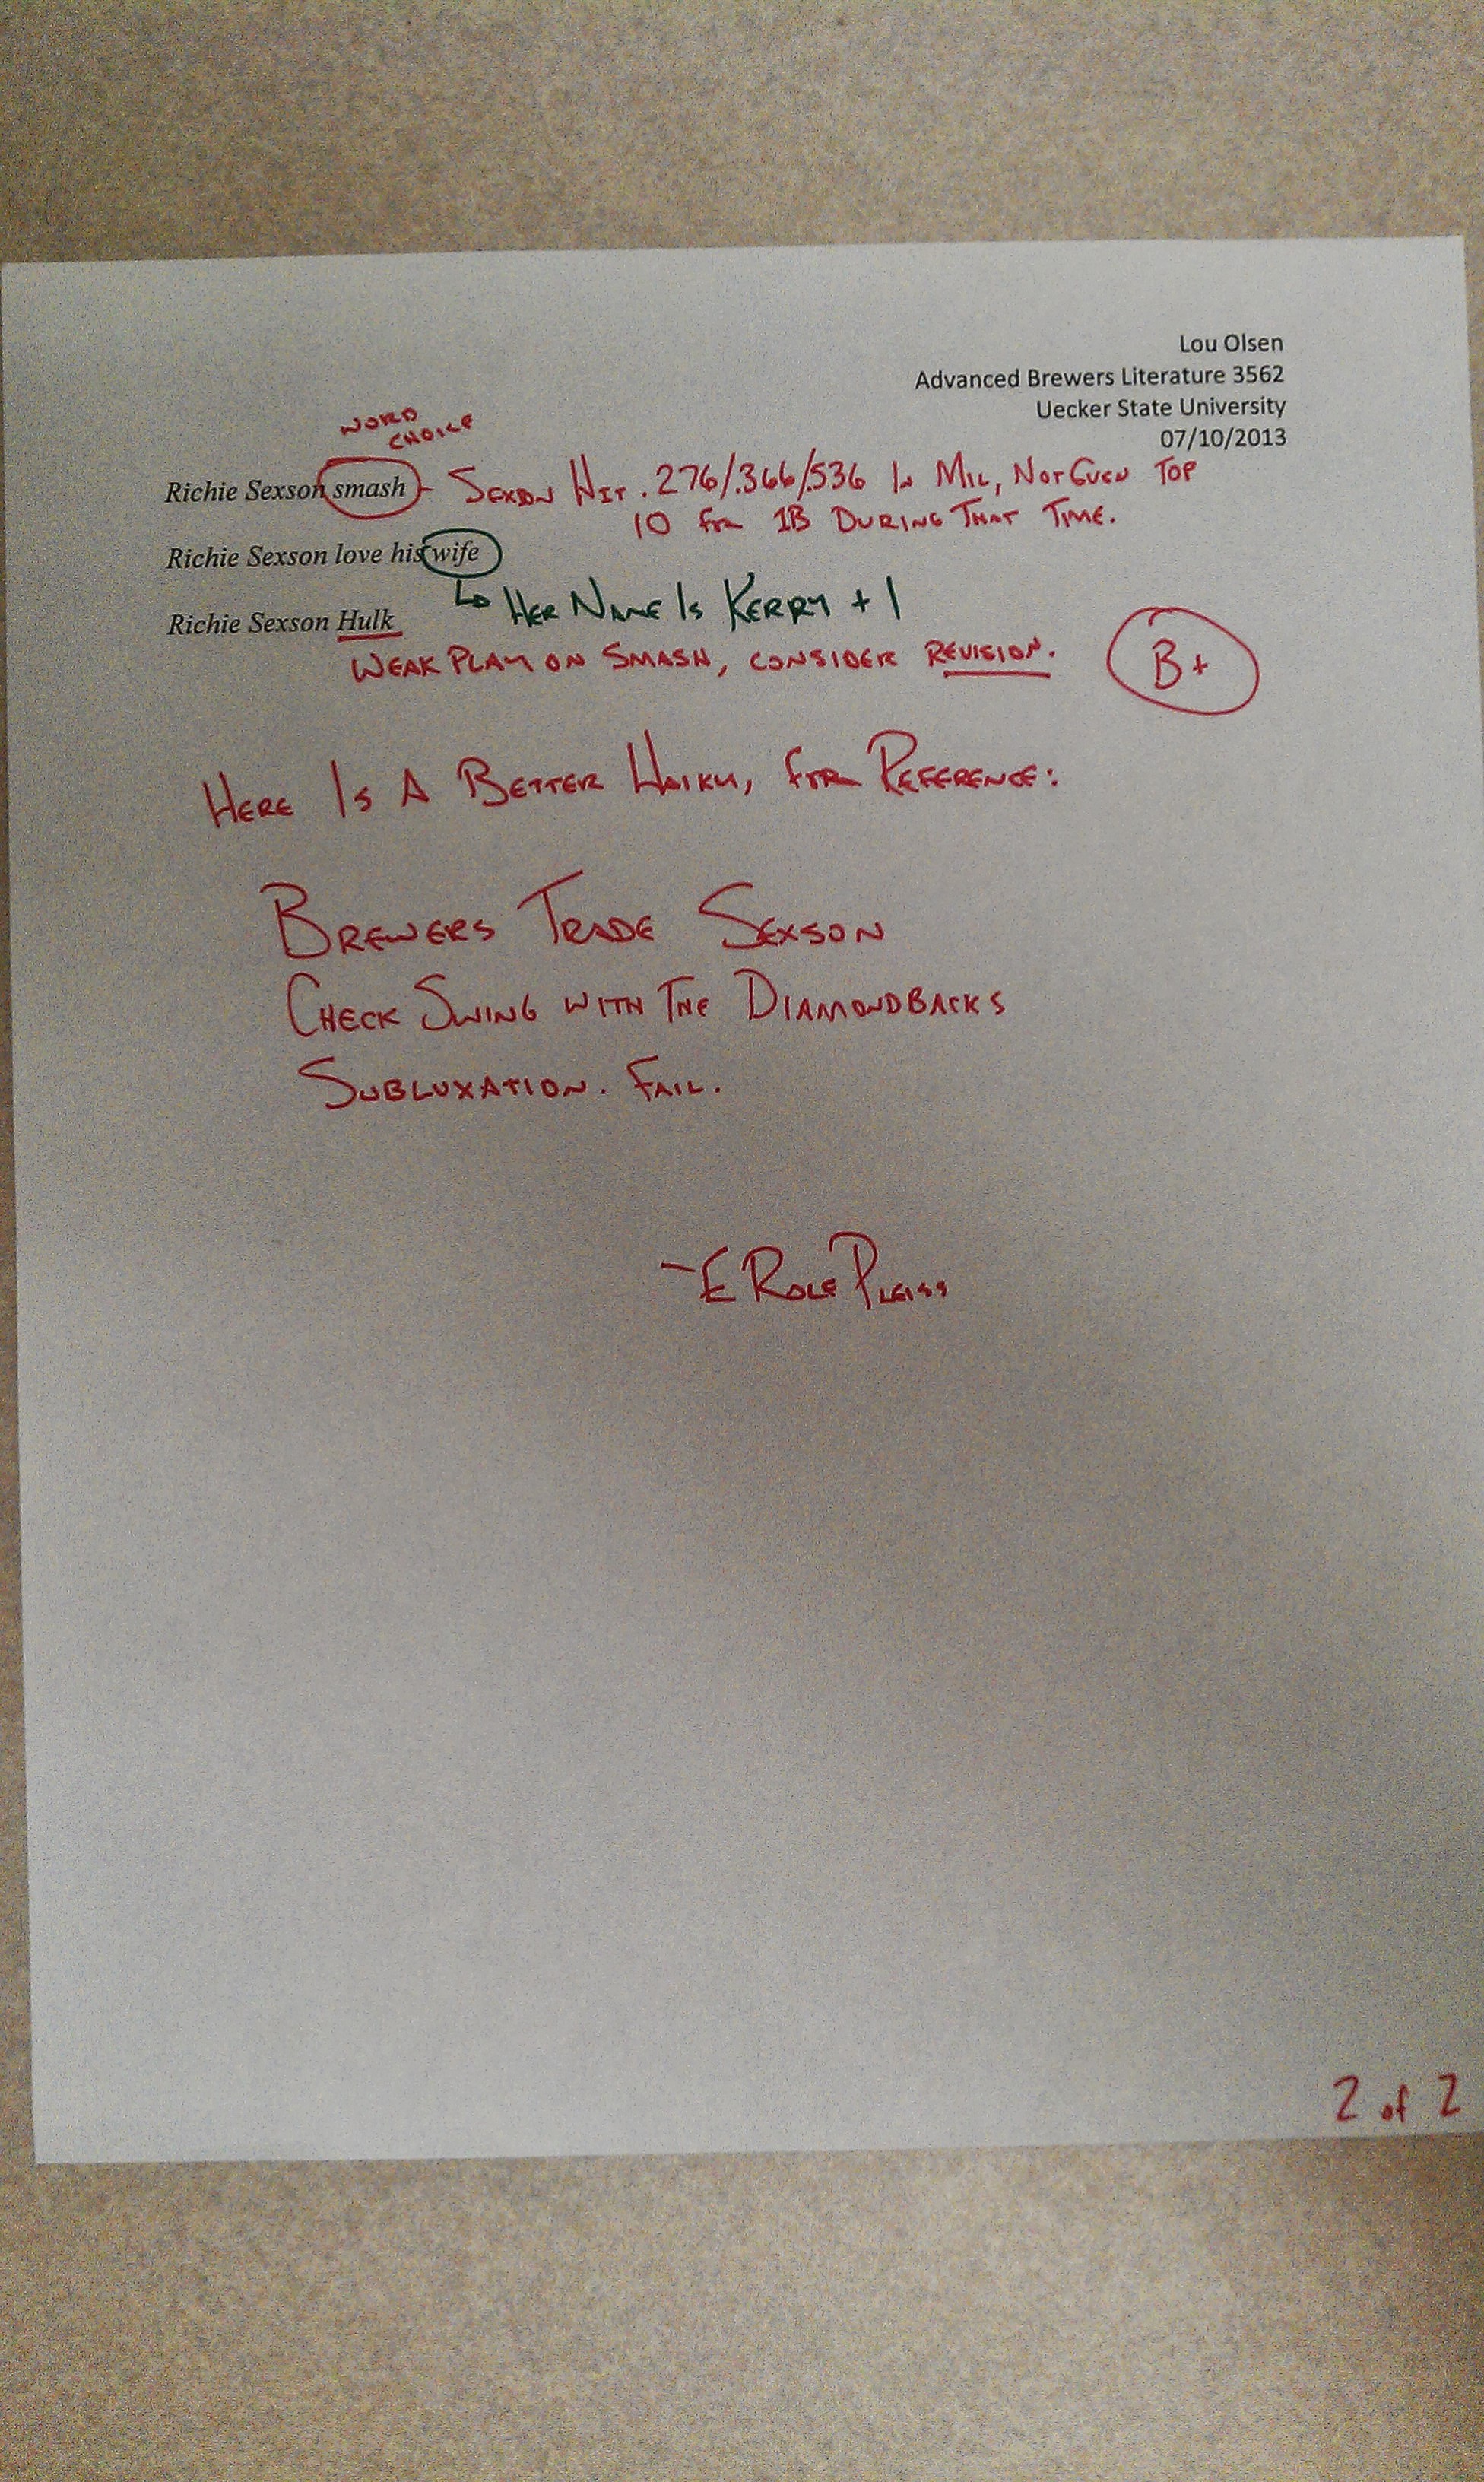 Lou Olsen
Advanced Brewers Literature 3562
Uecker State University
07/10/2013
WORD
CHOICE
Richie Sexson smash - SEXSON HIT .276/.366/.536 IN MIL, NOT EVEN TOP
10 FOR 1B DURING THAT TIME.
Richie Sexson love his wife
HER NAME IS KERRY +1
Richie Sexson Hulk
WEAK PLAY ON SMASH, CONSIDER REVISION.
B+
HERE IS A BETTER HAIKU, FOR REFERENCE:
BREWERS TRADE SEXSON
CHECK SWING WITH THE DIAMONDBACKS
SUBLUXATION. FAIL.
-E ROLF PLEISS
2 of 2